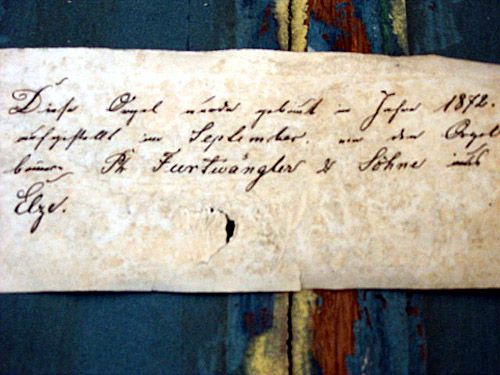 Diese Orgel wurde gebaut im Jahre 1872.
aufgestellt im September, von den Orgel
bauern Ph Furtwängler & Söhne aus
Elze.